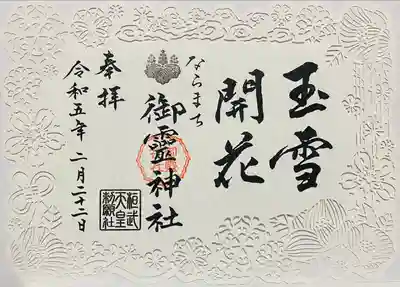 玉雪
開花
ならまち
御靈神社
奉拝
令和五年二月二十二日
桓武
天皇
勅願社